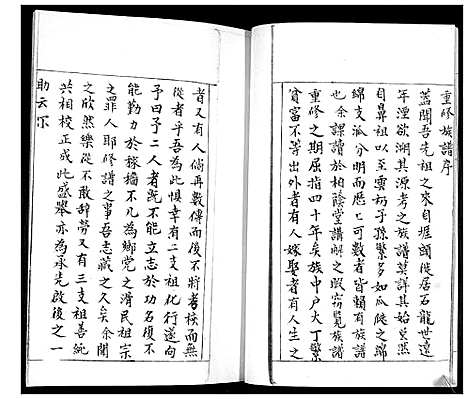 重修族譜序
蓋聞吾先祖之來自涯頭徙居石龍世遠
年湮欲溯其源考之族譜莫詳其始矣然
自鼻祖以至雲礽子孫繁多如瓜瓞之綿
綿支派分明而歷歷可數者皆賴有族譜
也余課讀於柏蔭堂講解之暇竊覽族譜
重修之期屈指四十年矣族中戶大丁繁
貧富不等出外者有人嫁娶者有人生之
者又有人倘再數傳而後不將考核而無
從者乎吾為此惧幸有二支祖化行遂向
予曰予二人者既不能立志於功名復不
能勤力於稼穡不几為鄉党之濟民祖宗
之罪人耶修譜之事吾志藏之久矣余聞
之欣然樂從不敢辞勞又有三支祖善純
共相校正成此盛舉亦為承先啟後之一
助云尔